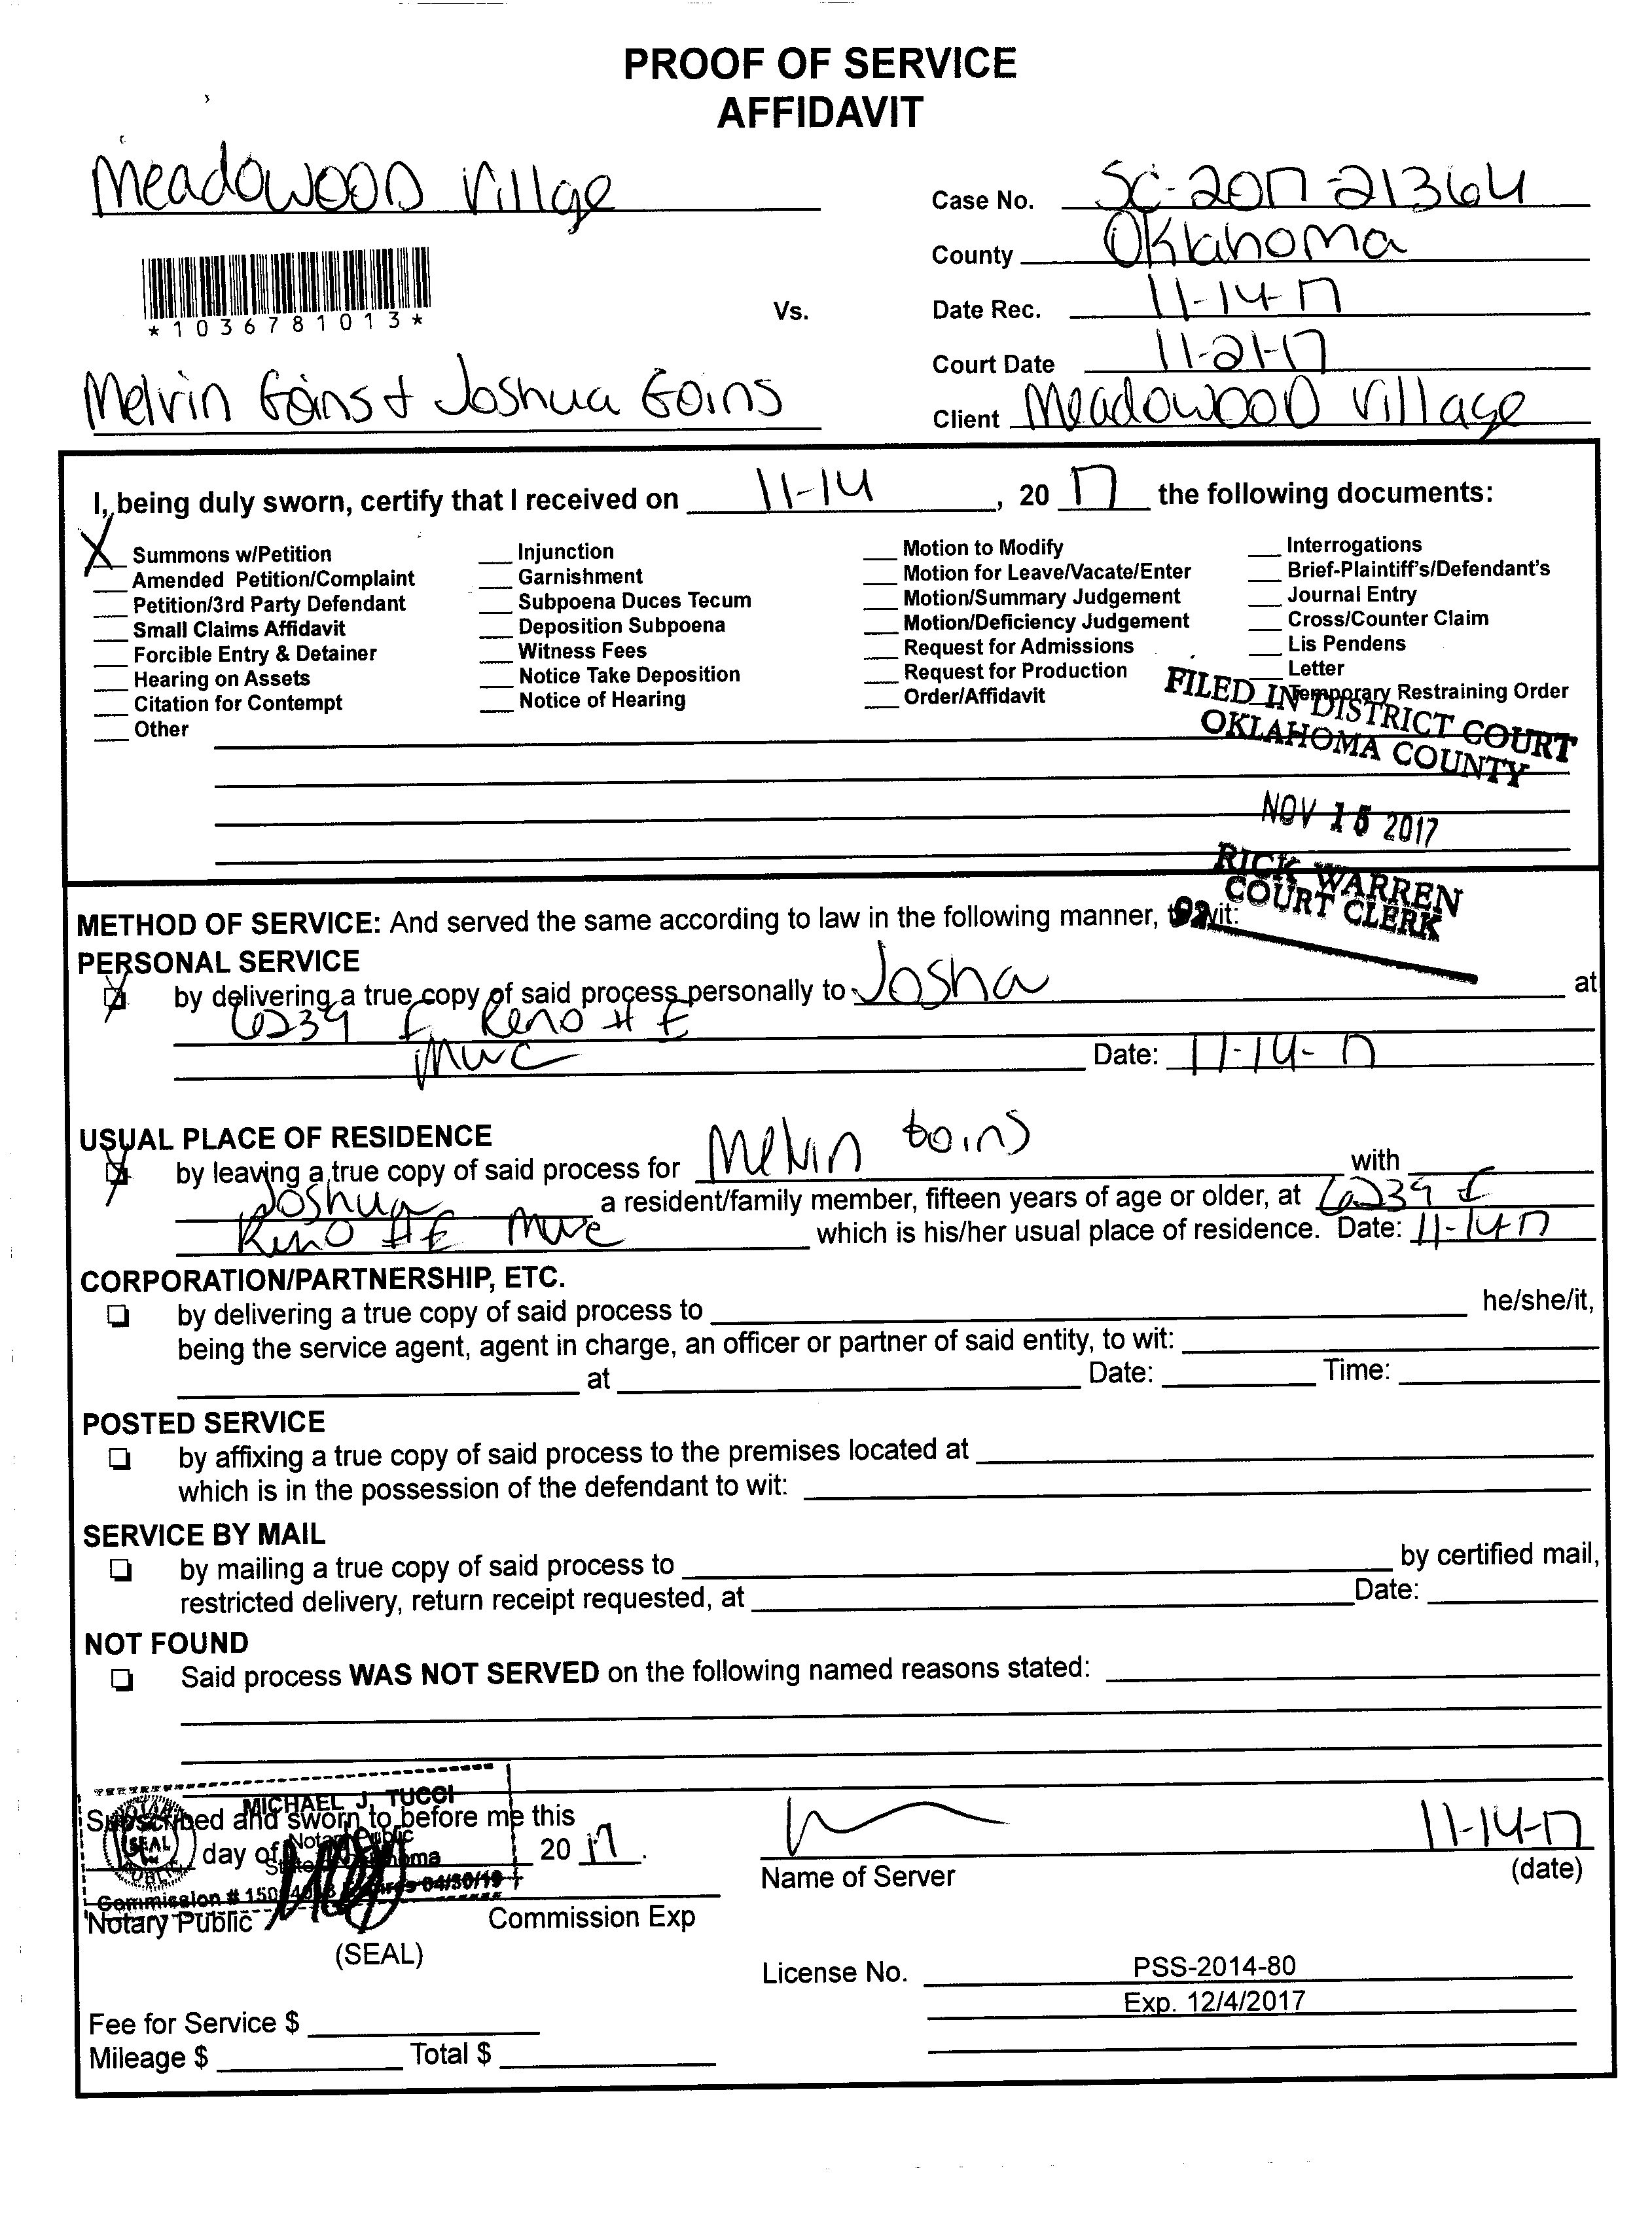 PROOF OF SERVICE
AFFIDAVIT
Meadowood Villge
Case No. SC-2017-21364
County Oklahoma
*1036781013*
Vs.
Date Rec. 11-14-17
Court Date 11-21-17
Melvin Goins + Joshua Goins
Client Meadowood Village
I, being duly sworn, certify that I received on 11-14, 20 17 the following documents:
X Summons w/Petition
Amended Petition/Complaint
Petition/3rd Party Defendant
Small Claims Affidavit
Forcible Entry & Detainer
Hearing on Assets
Citation for Contempt
Other
Injunction
Garnishment
Subpoena Duces Tecum
Deposition Subpoena
Witness Fees
Notice Take Deposition
Notice of Hearing
Motion to Modify
Motion for Leave/Vacate/Enter
Motion/Summary Judgement
Motion/Deficiency Judgement
Request for Admissions
Request for Production
Order/Affidavit
Interrogations
Brief-Plaintiff's/Defendant's
Journal Entry
Cross/Counter Claim
Lis Pendens
Letter
Temporary Restraining Order
FILED IN DISTRICT COURT
OKLAHOMA COUNTY
NOV 15 2017
RICK WARREN
COURT CLERK
92
METHOD OF SERVICE: And served the same according to law in the following manner, to wit:
PERSONAL SERVICE
X by delivering a true copy of said process personally to Josha at
6239 E Reno # E
MWC Date: 11-14-17
USUAL PLACE OF RESIDENCE
X by leaving a true copy of said process for Melvin Goins with
Joshua a resident/family member, fifteen years of age or older, at 6239 E
Reno #E MWC which is his/her usual place of residence. Date: 11-14-17
CORPORATION/PARTNERSHIP, ETC.
by delivering a true copy of said process to he/she/it,
being the service agent, agent in charge, an officer or partner of said entity, to wit:
at Date: Time:
POSTED SERVICE
by affixing a true copy of said process to the premises located at
which is in the possession of the defendant to wit:
SERVICE BY MAIL
by mailing a true copy of said process to by certified mail,
restricted delivery, return receipt requested, at Date:
NOT FOUND
Said process WAS NOT SERVED on the following named reasons stated:
MICHAEL J. TUCCI
Subscribed and sworn to before me this
Notary Public
SEAL
day of 20 17.
State Oklahoma
Commission # Expires 04/30/19
Notary Public Commission Exp
(SEAL)
11-14-17
Name of Server (date)
License No. PSS-2014-80
Exp. 12/4/2017
Fee for Service $
Mileage $ Total $